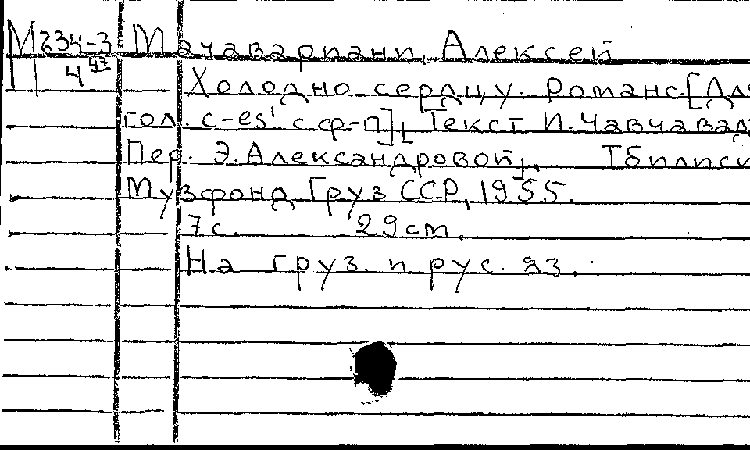 М234-3 Мачавариани, Алексей
4 43 Холодно сердцу. Романс. [Для
гол. c-es' с ф-п], [Текст И. Чавчавад
Пер. Э. Александровой], Тбилиси
Музфонд Груз ССР, 1955.
7 с. 29 cm.
На груз. и рус. яз.